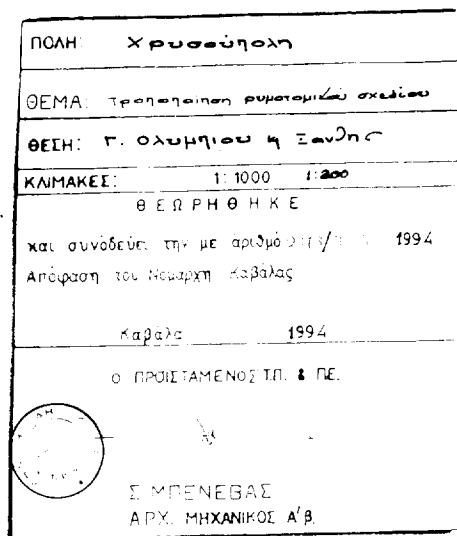 ΠΟΛΗ: Χρυσούπολη
ΘΕΜΑ: Τροποποίηση ρυμοτομικού σχεδίου
ΘΕΣΗ: Γ. Ολυμπίου & Ξάνθης
ΚΛΙΜΑΚΕΣ: 1:1000 1:200
ΘΕΩΡΗΘΗΚΕ
και συνοδεύει την με αριθμό 1994
Απόφαση του Νομάρχη Καβάλας
Καβάλα 1994
Ο ΠΡΟΪΣΤΑΜΕΝΟΣ Τ.Π. & Π.Ε.
Σ ΜΠΕΝΕΒΑΣ
ΑΡΧ. ΜΗΧΑΝΙΚΟΣ Α'β.